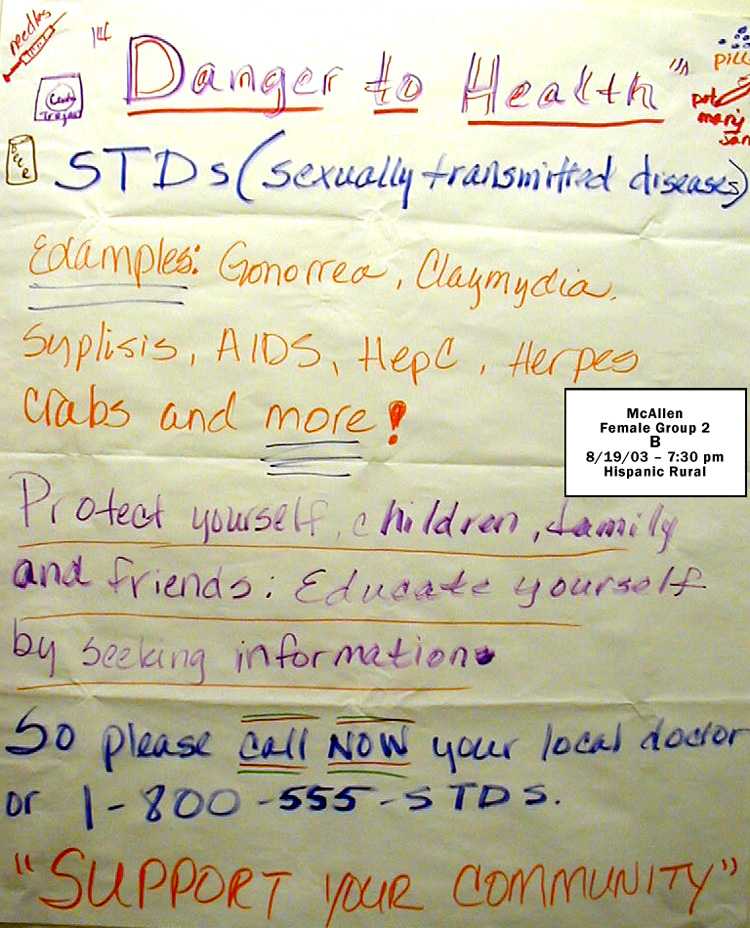 needles
"Danger to Health"
pills
pot
mary
jan
STDs (sexually transmitted diseases)
Examples: Gonorrea, Claymydia,
Syplisis, AIDS, HepC, Herpes
Crabs and more!
McAllen
Female Group 2
B
8/19/03 – 7:30 pm
Hispanic Rural
Protect yourself, children, family
and friends: Educate yourself
by seeking information.
So please call NOW your local doctor
or 1-800-555-STDs.
"SUPPORT YOUR COMMUNITY"